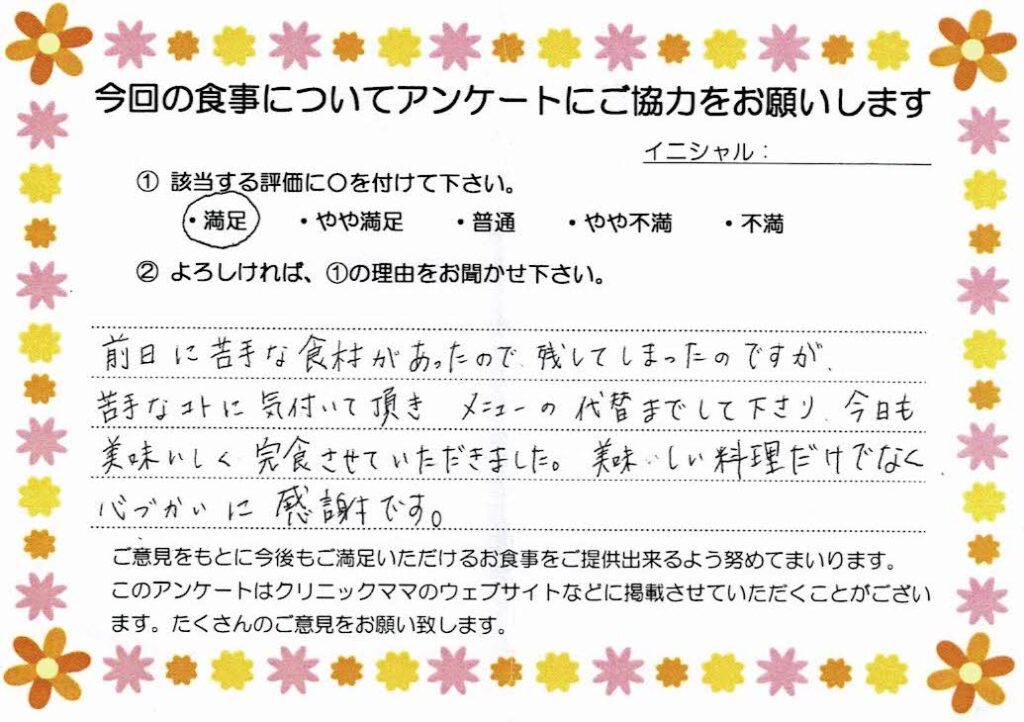 今回の食事についてアンケートにご協力をお願いします
イニシャル：
① 該当する評価に〇を付けて下さい。
・満足 ・やや満足 ・普通 ・やや不満 ・不満
② よろしければ、①の理由をお聞かせ下さい。
前日に苦手な食材があったので、残してしまったのですが、
苦手なコトに気付いて頂き メニューの代替までして下さり、今日も
美味しく完食させていただきました。美味しい料理だけでなく
心づかいに感謝です。
ご意見をもとに今後もご満足いただけるお食事をご提供出来るよう努めてまいります。
このアンケートはクリニックママのウェブサイトなどに掲載させていただくことがござい
ます。たくさんのご意見をお願い致します。